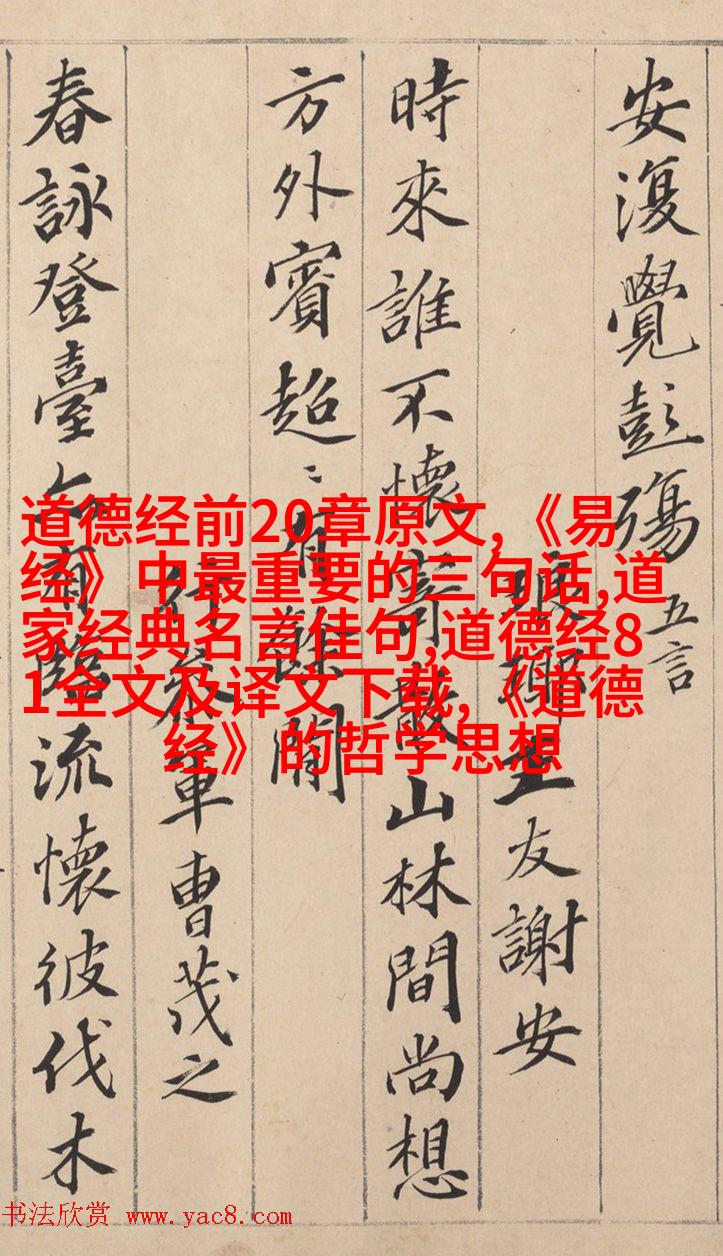 安復覺彭殤 五言
琅耶王友謝安
時來誰不懷寄散山林間尚想
方外賓超〻有餘閒
行參軍曹茂之
春詠登臺亦有臨流懷彼伐木
道德经前20章原文,《易
经》中最重要的三句话,道
家经典名言佳句,道德经8
1全文及译文下载,《道德
经》的哲学思想
书法欣赏 www.yac8.com